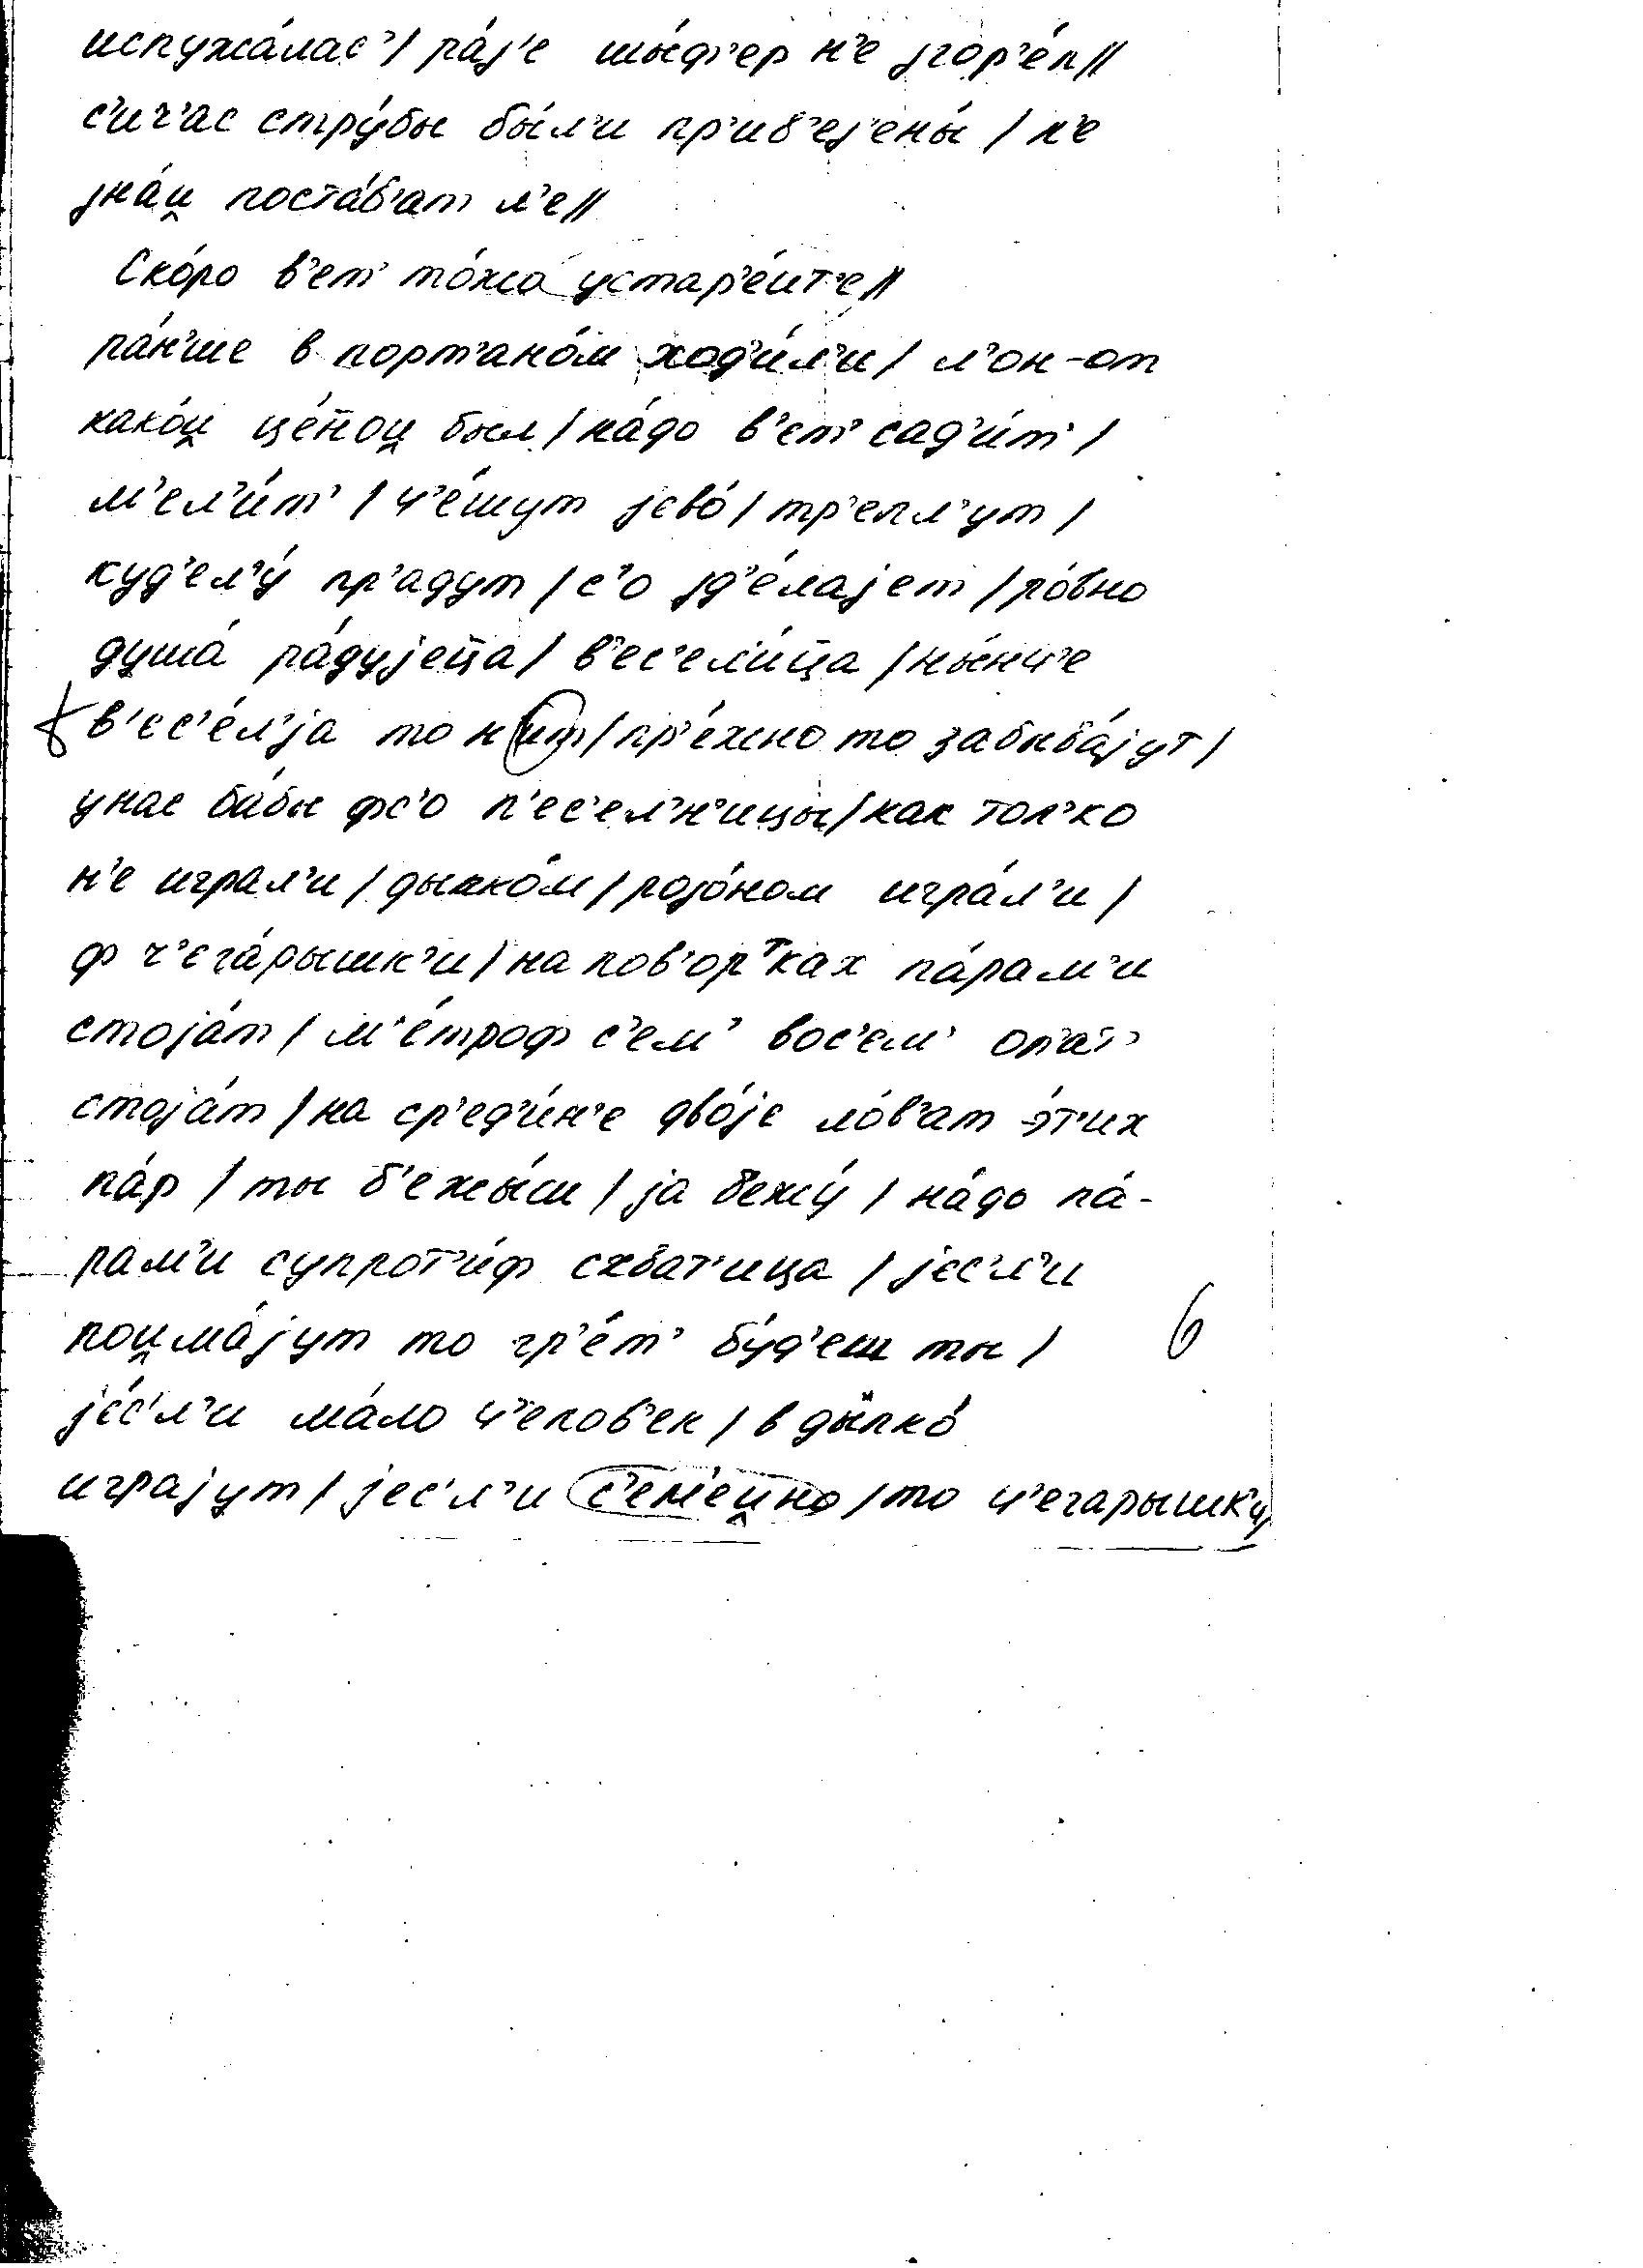 испужа́лас'/ ра́ј'е шы́ф'ер н'е јгор'е́л//
с'ич'ас стру́бы бы́л'и пр'ив'еј'ены́ / н'е
јна́й поста́в'ат л'е//
Ско́ро в'ет' то́жо устар'е́ит'е//
ра́н'ше в порт'ано́м ход'и́л'и / л'он-от
како́й це́ной был / на́до в'ет' сад'и́т' /
м'ел'и́т' / ч'е́шут јево́ / тр'епл'ут /
куд'ел'у́ пр'адут / с'о јд'е́лајет / ро́вно
душа́ ра́дујеца / в'ес'ели́ца / ны́нч'е
в'ес'е́л'ја то нит / пр'е́жно то забыва́јут /
у нас ба́бы фс'о п'ес'ел'н'ицы / как тол'ко
н'е играл'и / дыл

ко́м /ројо́ном игра́л'и /
ф ч'ега́рышк'и / на пов'ортках па́рам'и
стоја́т / м'е́троф с'ем' вос'ем' оп'ат'
стоја́т / на ср'ед'и́н'е дво́је ло́в'ат э́т'их
па́р / ты б'ежы́ш / ја бежу́ / на́до па́-
рам'и супрот'и́ф схват'ица / јес'л'и
пойма́јут то гр'е́т' бу́д'еш ты /
је́с'л'и ма́ло ч'елов'ек / в дылко́
играјут / јес'л'и с'ем'ейно / то ч'егарышк'и
6